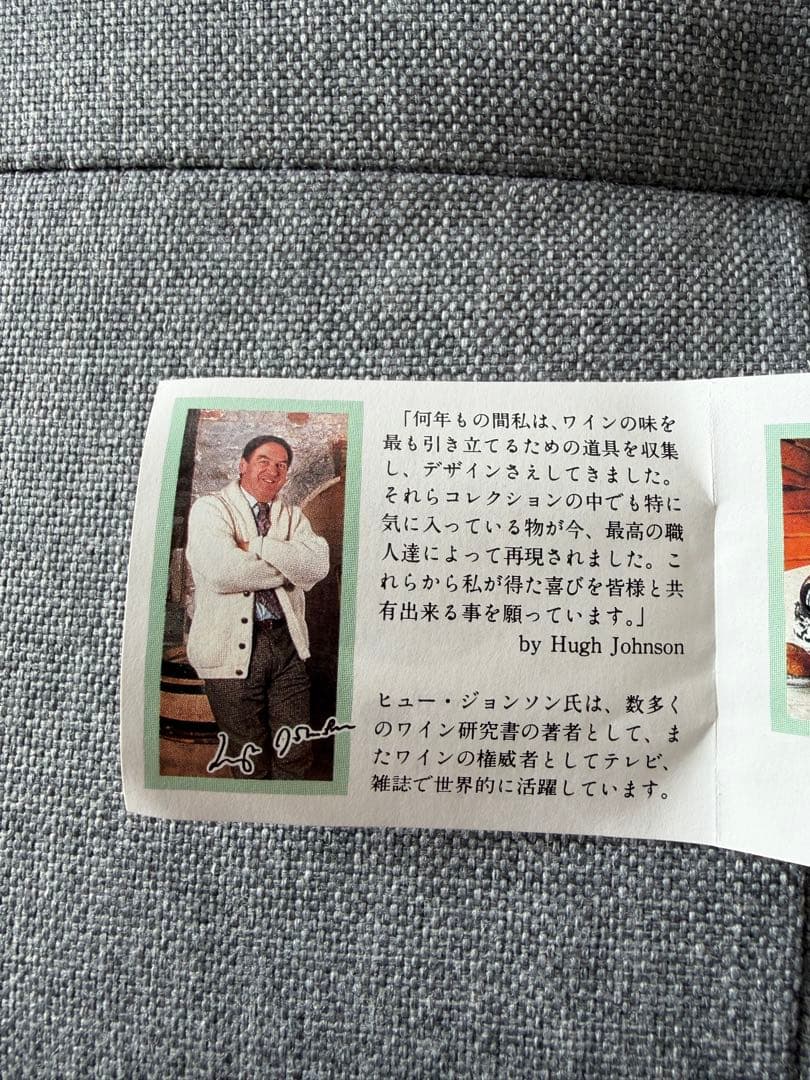 「何年もの間私は、ワインの味を
最も引き立てるための道具を収集
し、デザインさえしてきました。
それらコレクションの中でも特に
気に入っている物が今、最高の職
人達によって再現されました。こ
れらから私が得た喜びを皆様と共
有出来る事を願っています。」
by Hugh Johnson
ヒュー・ジョンソン氏は、数多く
のワイン研究書の著者として、ま
たワインの権威者としてテレビ、
雑誌で世界的に活躍しています。
Hugh Johnson